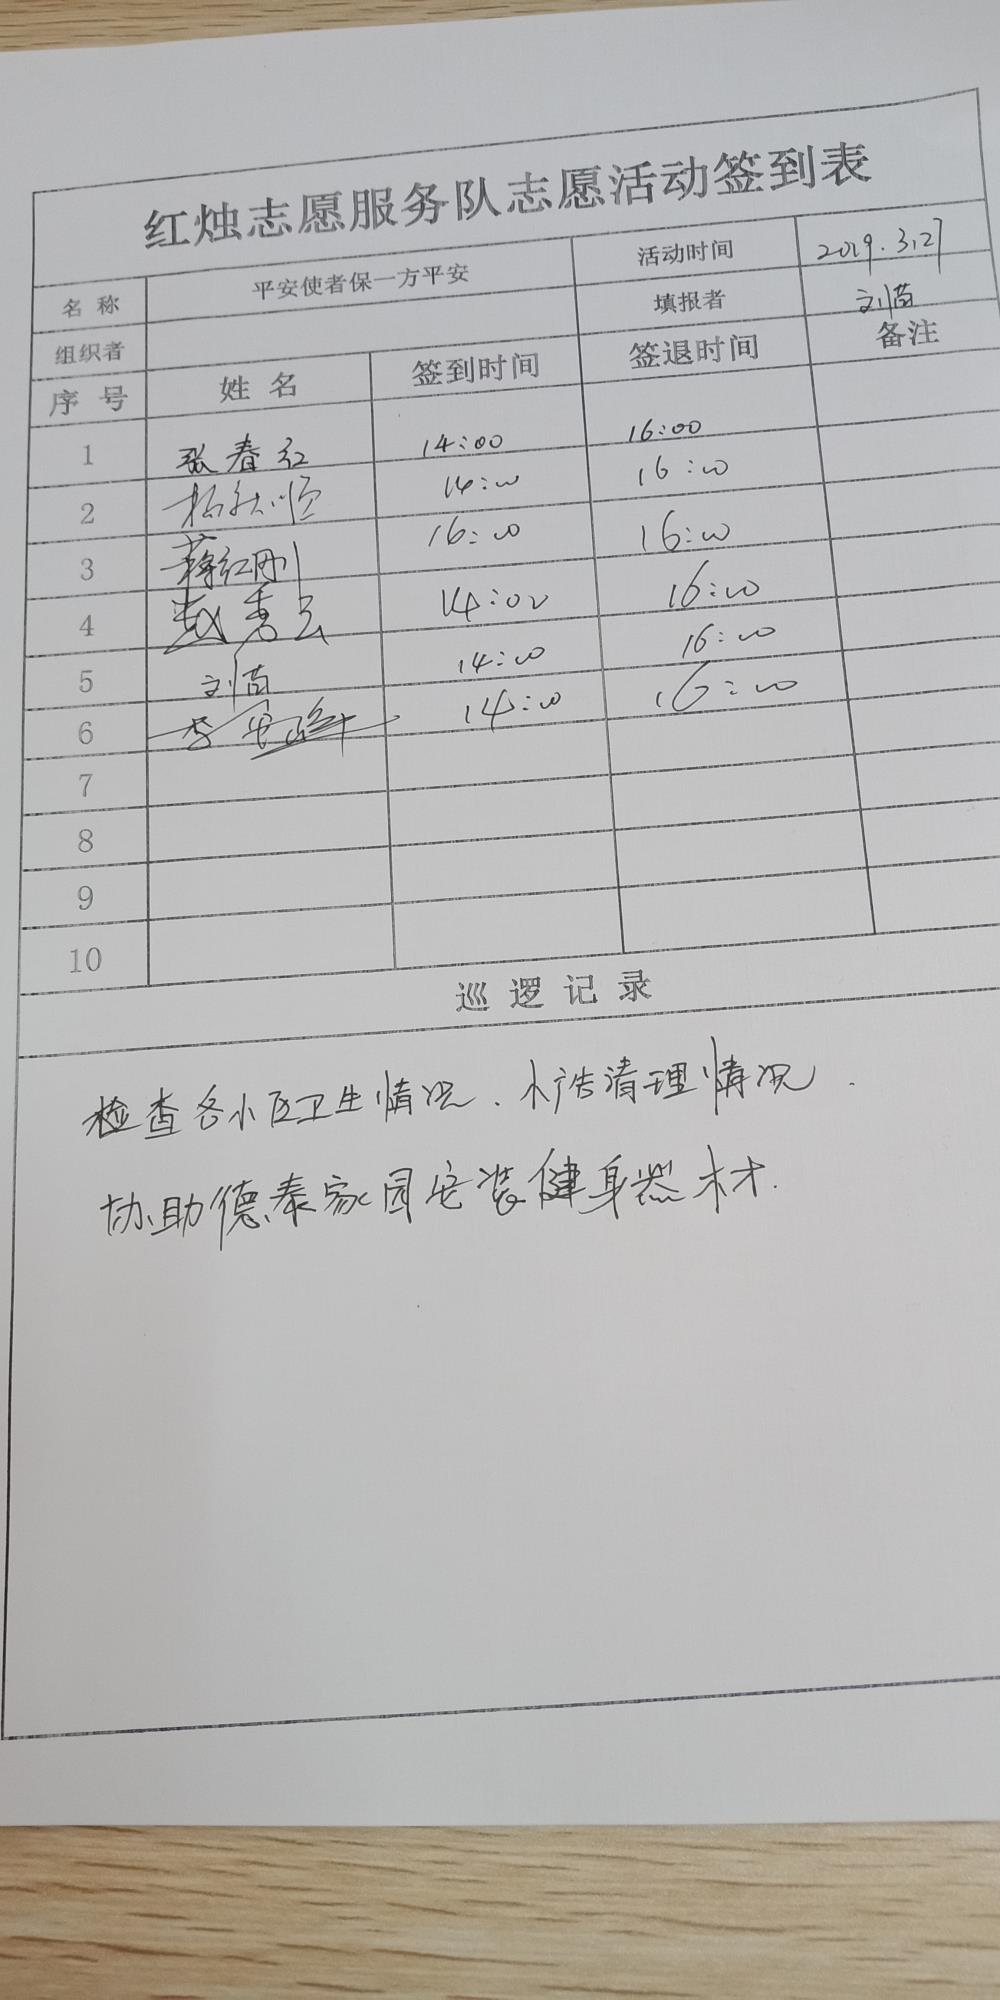 红烛志愿服务队志愿活动签到表
名称 平安使者保一方平安 活动时间 2019.3.27
组织者 填报者 刘苗
序号 姓名 签到时间 签退时间 备注
1 张春红 14:00 16:00
2 14:00 16:00
3 蒋红刚 16:00 16:00
4 赵秀云 14:00 16:00
5 刘苗 14:00 16:00
6 李 14:00 16:00
7
8
9
10
巡逻记录
检查各小区卫生情况、小广告清理情况.
协助德泰家园安装健身器材.